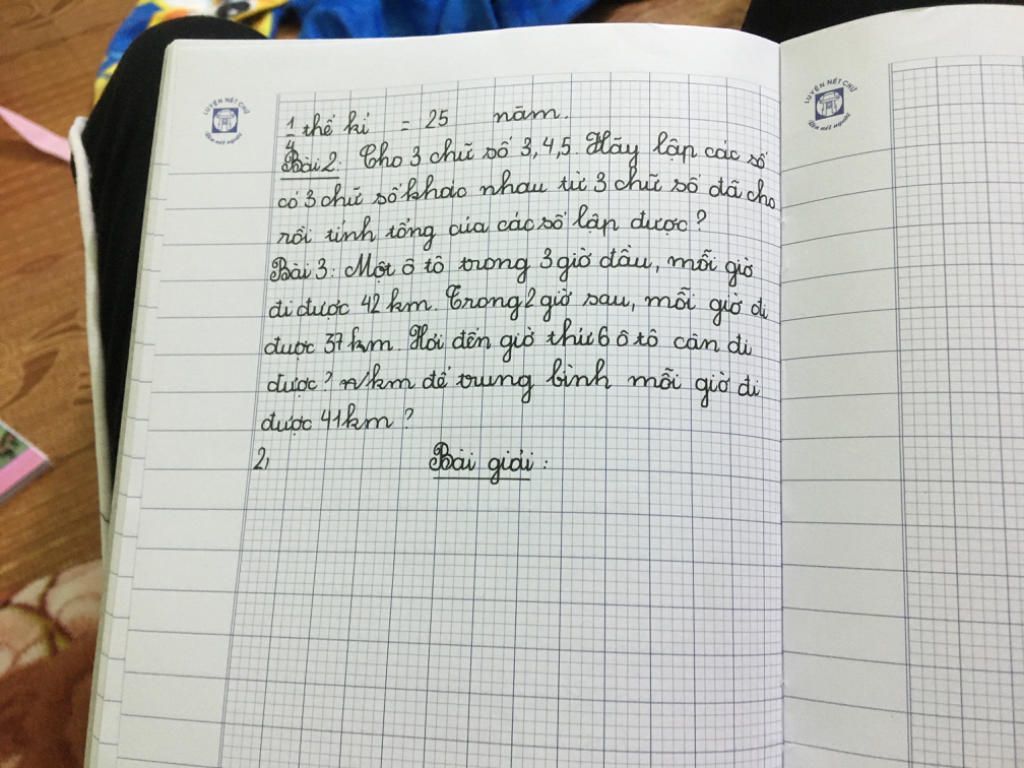 LUYỆN NÉT CHỮ
Rèn nết người
LUYỆN NÉT CHỮ
Rèn nết người
1/4 thế kỉ = 25 năm.
Bài 2: Cho 3 chữ số 3, 4, 5. Hãy lập các số
có 3 chữ số khác nhau từ 3 chữ số đã cho
rồi tính tổng của các số lập được?
Bài 3: Một ô tô trong 3 giờ đầu, mỗi giờ
đi được 42 km. Trong 2 giờ sau, mỗi giờ đi
được 37 km. Hỏi đến giờ thứ 6 ô tô cần đi
được? n/km để trung bình mỗi giờ đi
được 41 km?
2, Bài giải: